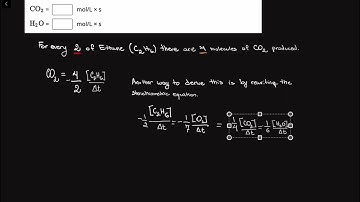 CO₂ = mol/L × s
H₂O = mol/L × s
For every 2 of Ethane (C₂H₆) there are 4 molecules of CO₂ produced.
CO₂ = -4/2 [C₂H₆]/Δt
Another way to derive this is by rewriting the
stoichiometric equation.
-1/2 [C₂H₆]/Δt = -1/7 [O₂]/Δt = 1/4 [CO₂]/Δt = 1/6 [H₂O]/Δt